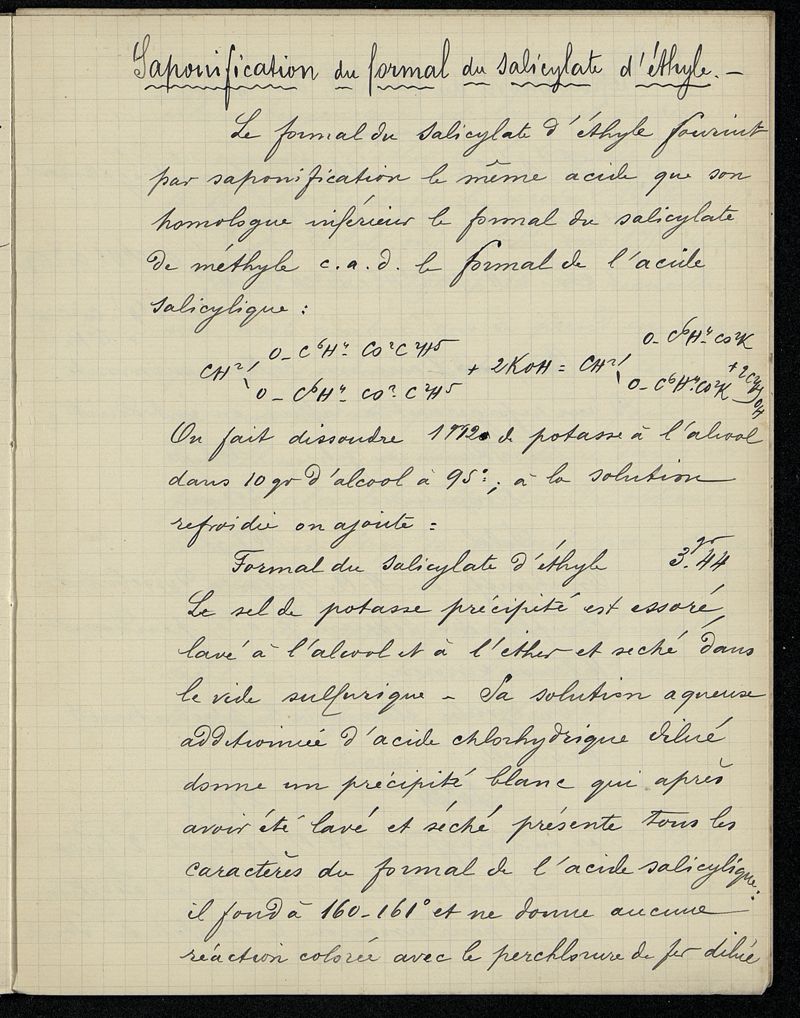 Saponification du formal du salicylate d'éthyle. –
Le formal du salicylate d'éthyle fournit
par saponification le même acide que son
homologue inférieur le formal du salicylate
de méthyle c.a.d. le formal de l'acide
salicylique :
O – C⁶H⁴ – CO² C²H⁵ O – C⁶H⁴ – CO²K
CH² + 2KOH = CH² + 2C²H⁵OH
O – C⁶H⁴ – CO² – C²H⁵ O – C⁶H⁴ – CO²K
On fait dissoudre 1gr12 de potasse à l'alcool
dans 10 gr d'alcool à 95° ; à la solution
refroidie on ajoute :
Formal du salicylate d'éthyle 3.gr44
Le sel de potasse précipité est essoré,
lavé à l'alcool et à l'éther et seché dans
le vide sulfurique – Sa solution aqueuse
additionnée d'acide chlorhydrique dilué
donne un précipité blanc qui après
avoir été lavé et séché présente tous les
caractères du formal de l'acide salicylique :
il fond à 160-161° et ne donne aucune
réaction colorée avec le perchlorure de fer dilué